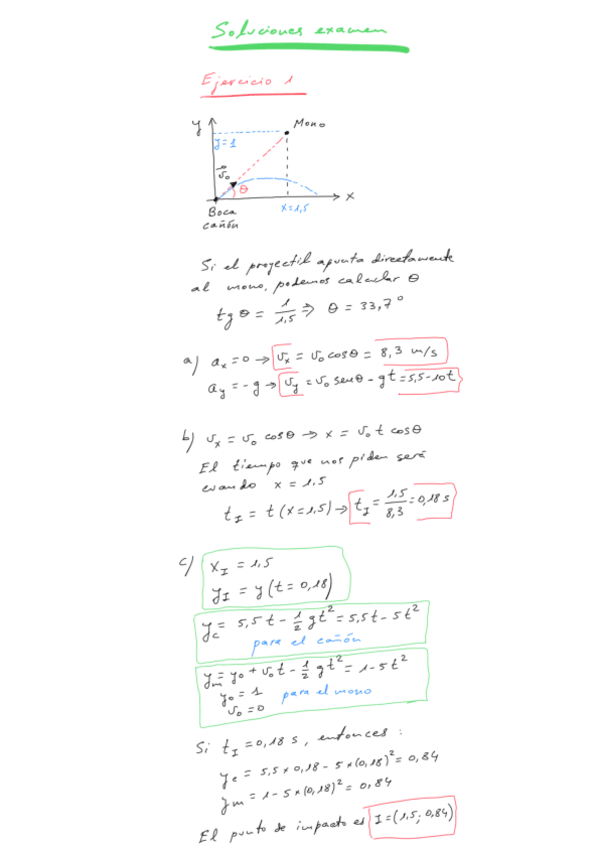 Soluciones examen
Ejercicio 1
y
Mono
y=1
v₀
θ
x
Boca
cañón
x=1,5
Si el proyectil apunta directamente
al mono, podemos calcular θ
tg θ = 1/1,5 ⇒ θ = 33,7°
a) aₓ = 0 → vₓ = v₀ cosθ = 8,3 m/s
a_y = -g → v_y = v₀ senθ - gt = 5,5-10t
b) vₓ = v₀ cosθ → x = v₀ t cosθ
El tiempo que nos piden será
cuando x = 1,5
t_I = t (x=1,5) → t_I = 1,5/8,3 = 0,18 s
c) x_I = 1,5
y_I = y (t = 0,18)
y_c = 5,5 t - 1/2 gt² = 5,5t - 5t²
para el cañón
y_m = y₀ + v₀t - 1/2 gt² = 1-5t²
y₀ = 1 para el mono
v₀ = 0
Si t_I = 0,18 s, entonces:
y_c = 5,5 × 0,18 - 5 × (0,18)² = 0,84
y_m = 1 - 5 × (0,18)² = 0,84
El punto de impacto es I = (1,5; 0,84)